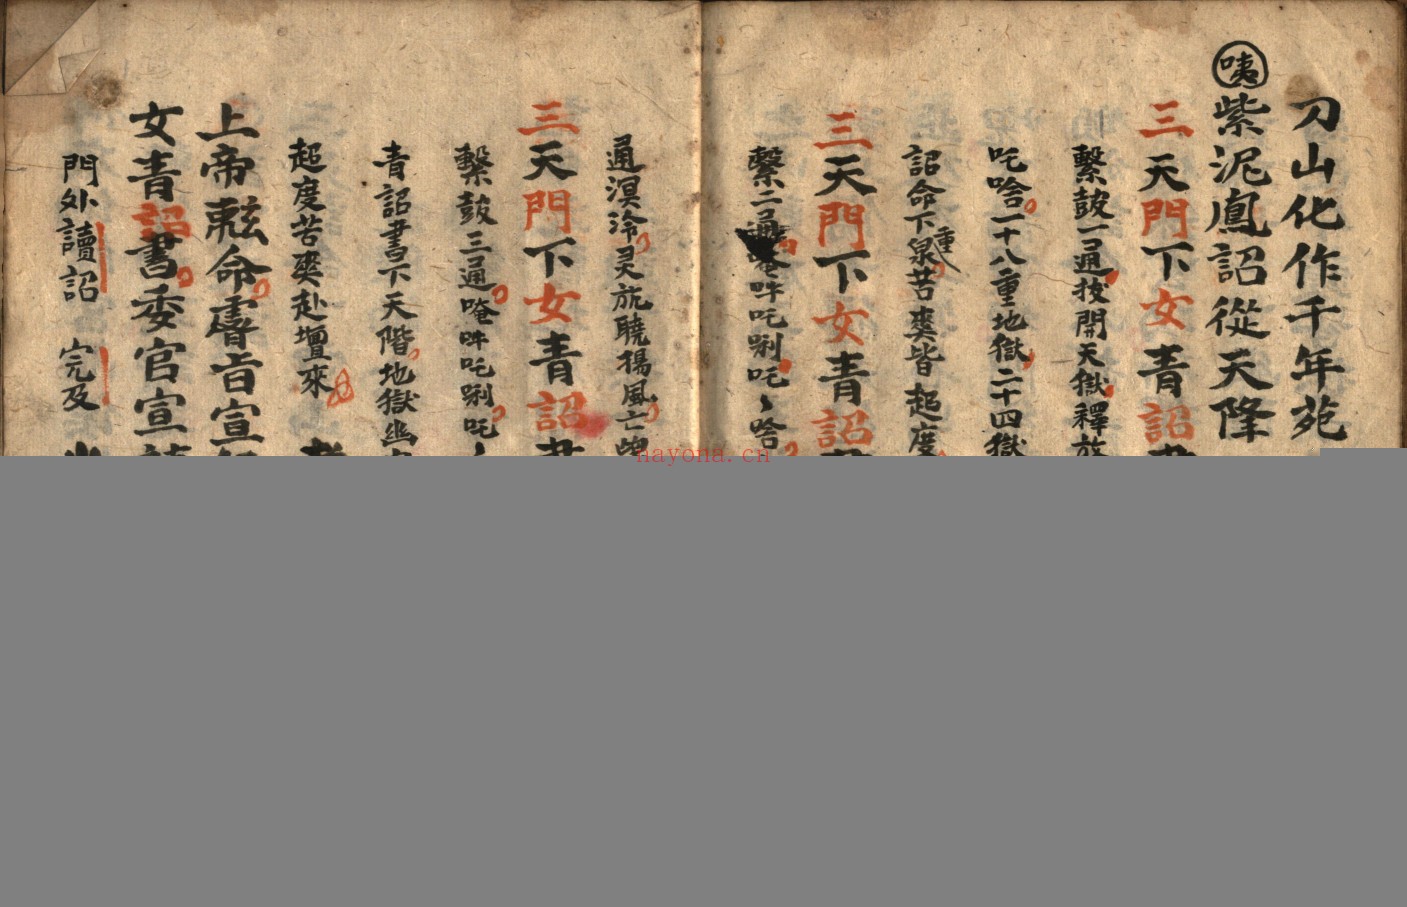 刀山化作千年苑
咦紫泥鳳詔從天降
三天門下女青詔
繫鼓一通拔開天獄釋放
吒唅一十八重地獄二十四獄
詔命下泉苦爽皆超度
重
三天門下女青詔
繫二通唵吽吒唎吒、唅
通溟泠灵旂聽揚風亡
三天門下女青詔
繫鼓三通唵吽吒唎吒
青詔書下天階地獄幽
超度苦爽赴壇來
上帝勅命睿旨宣
女青詔書委官宣
門外讀詔 完及
nayona.cn